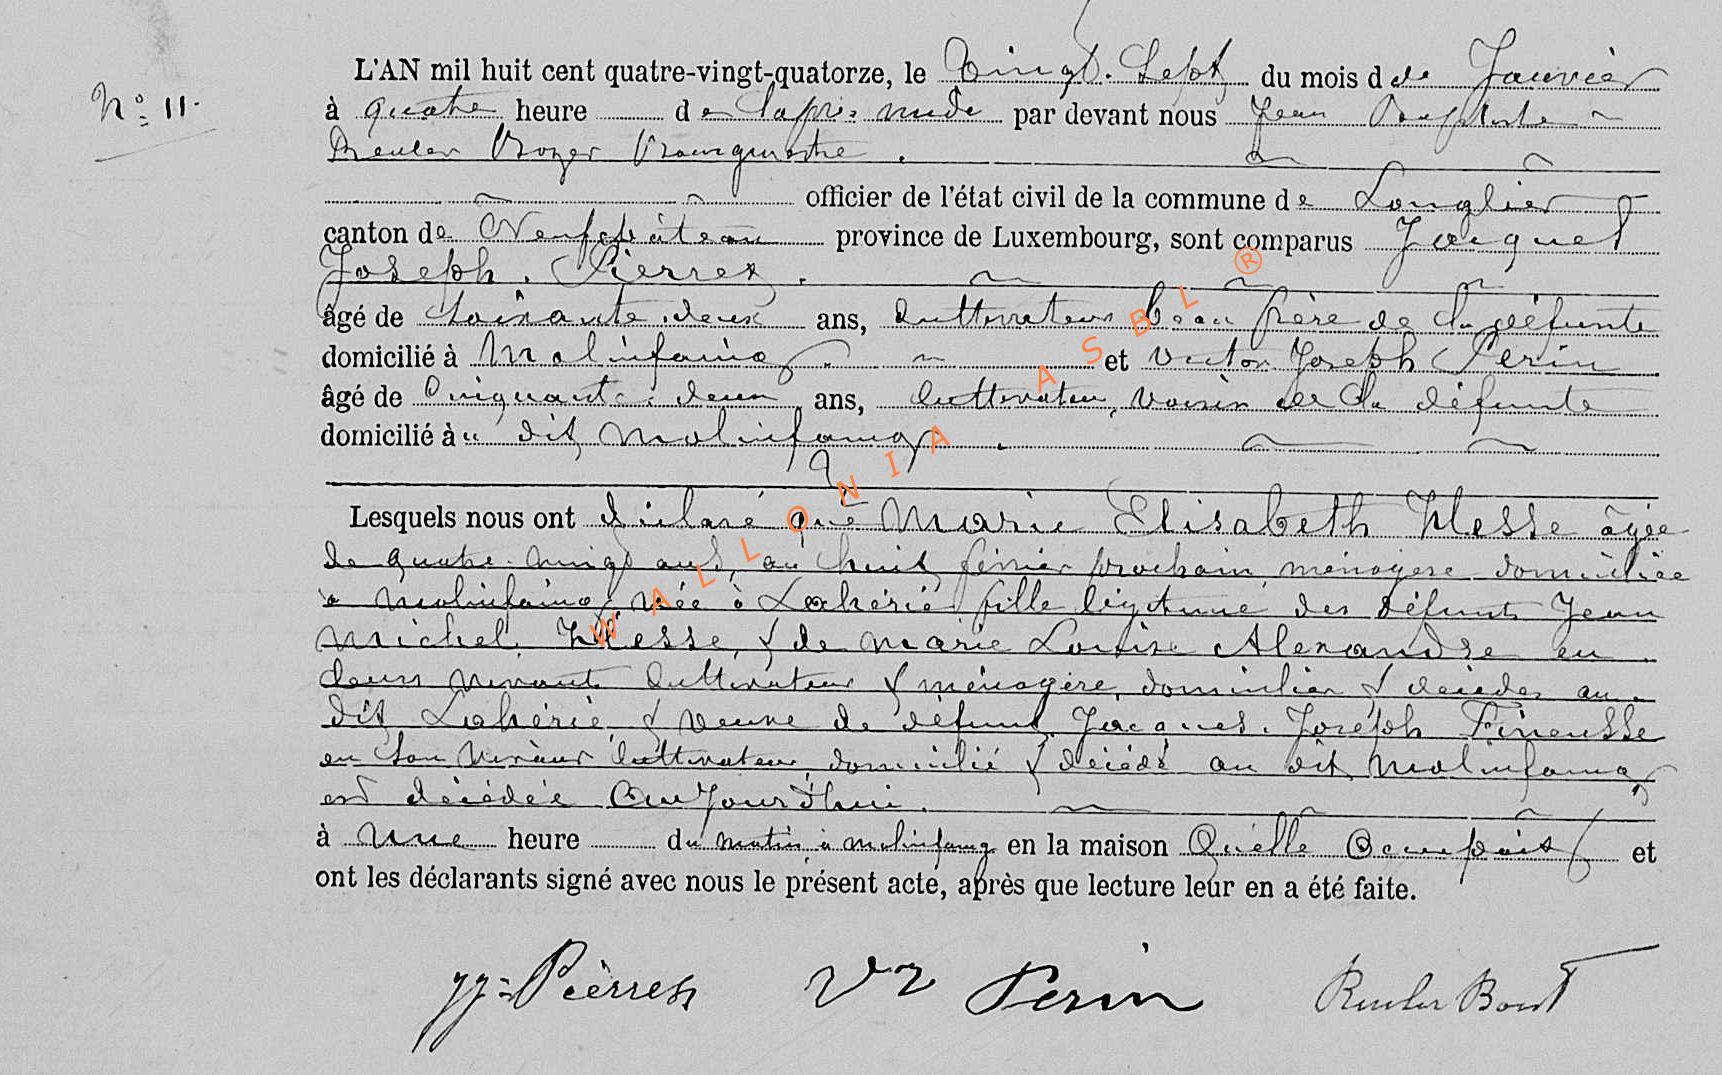 N° 11.
L'AN mil huit cent quatre-vingt-quatorze, le Vingt-Sept du mois d de Janvier
à quatre heure de l'après-midi par devant nous Jean Baptiste
Reuler Bourgmestre.
officier de l'état civil de la commune de Longlier
canton de Neufchâteau province de Luxembourg, sont comparus Jacques
Joseph. Pierret.
âgé de soixante-deux ans, Cultivateur beau frère de la défunte
domicilié à Molinfaing. et Victor Joseph Perin
âgé de Cinquante-deux ans, cultivateur, voisin de la défunte
domicilié à u dit Molinfaing.
Lesquels nous ont déclaré que Marie Elisabeth Hesse âgée
de quatre-vingt ans, au huit février prochain, ménagère domiciliée
à Molinfaing, née à Lahérie fille légitime des défunts Jean
Michel Hesse, & de Marie Louise Alexandre en
leurs vivants Cultivateur & ménagère, domiciliés & décédés au
dit Lahérie, & veuve de défunt Jacques. Joseph Fineusse
en son vivant Cultivateur, domicilié & décédé au dit Molinfaing
est décédée Aujourd'hui.
à une heure du matin à Molinfaing en la maison Qu'elle Occupait et
ont les déclarants signé avec nous le présent acte, après que lecture leur en a été faite.
JJ=Pierret Vr Perin Reuler
WALLONIA ASBL ®